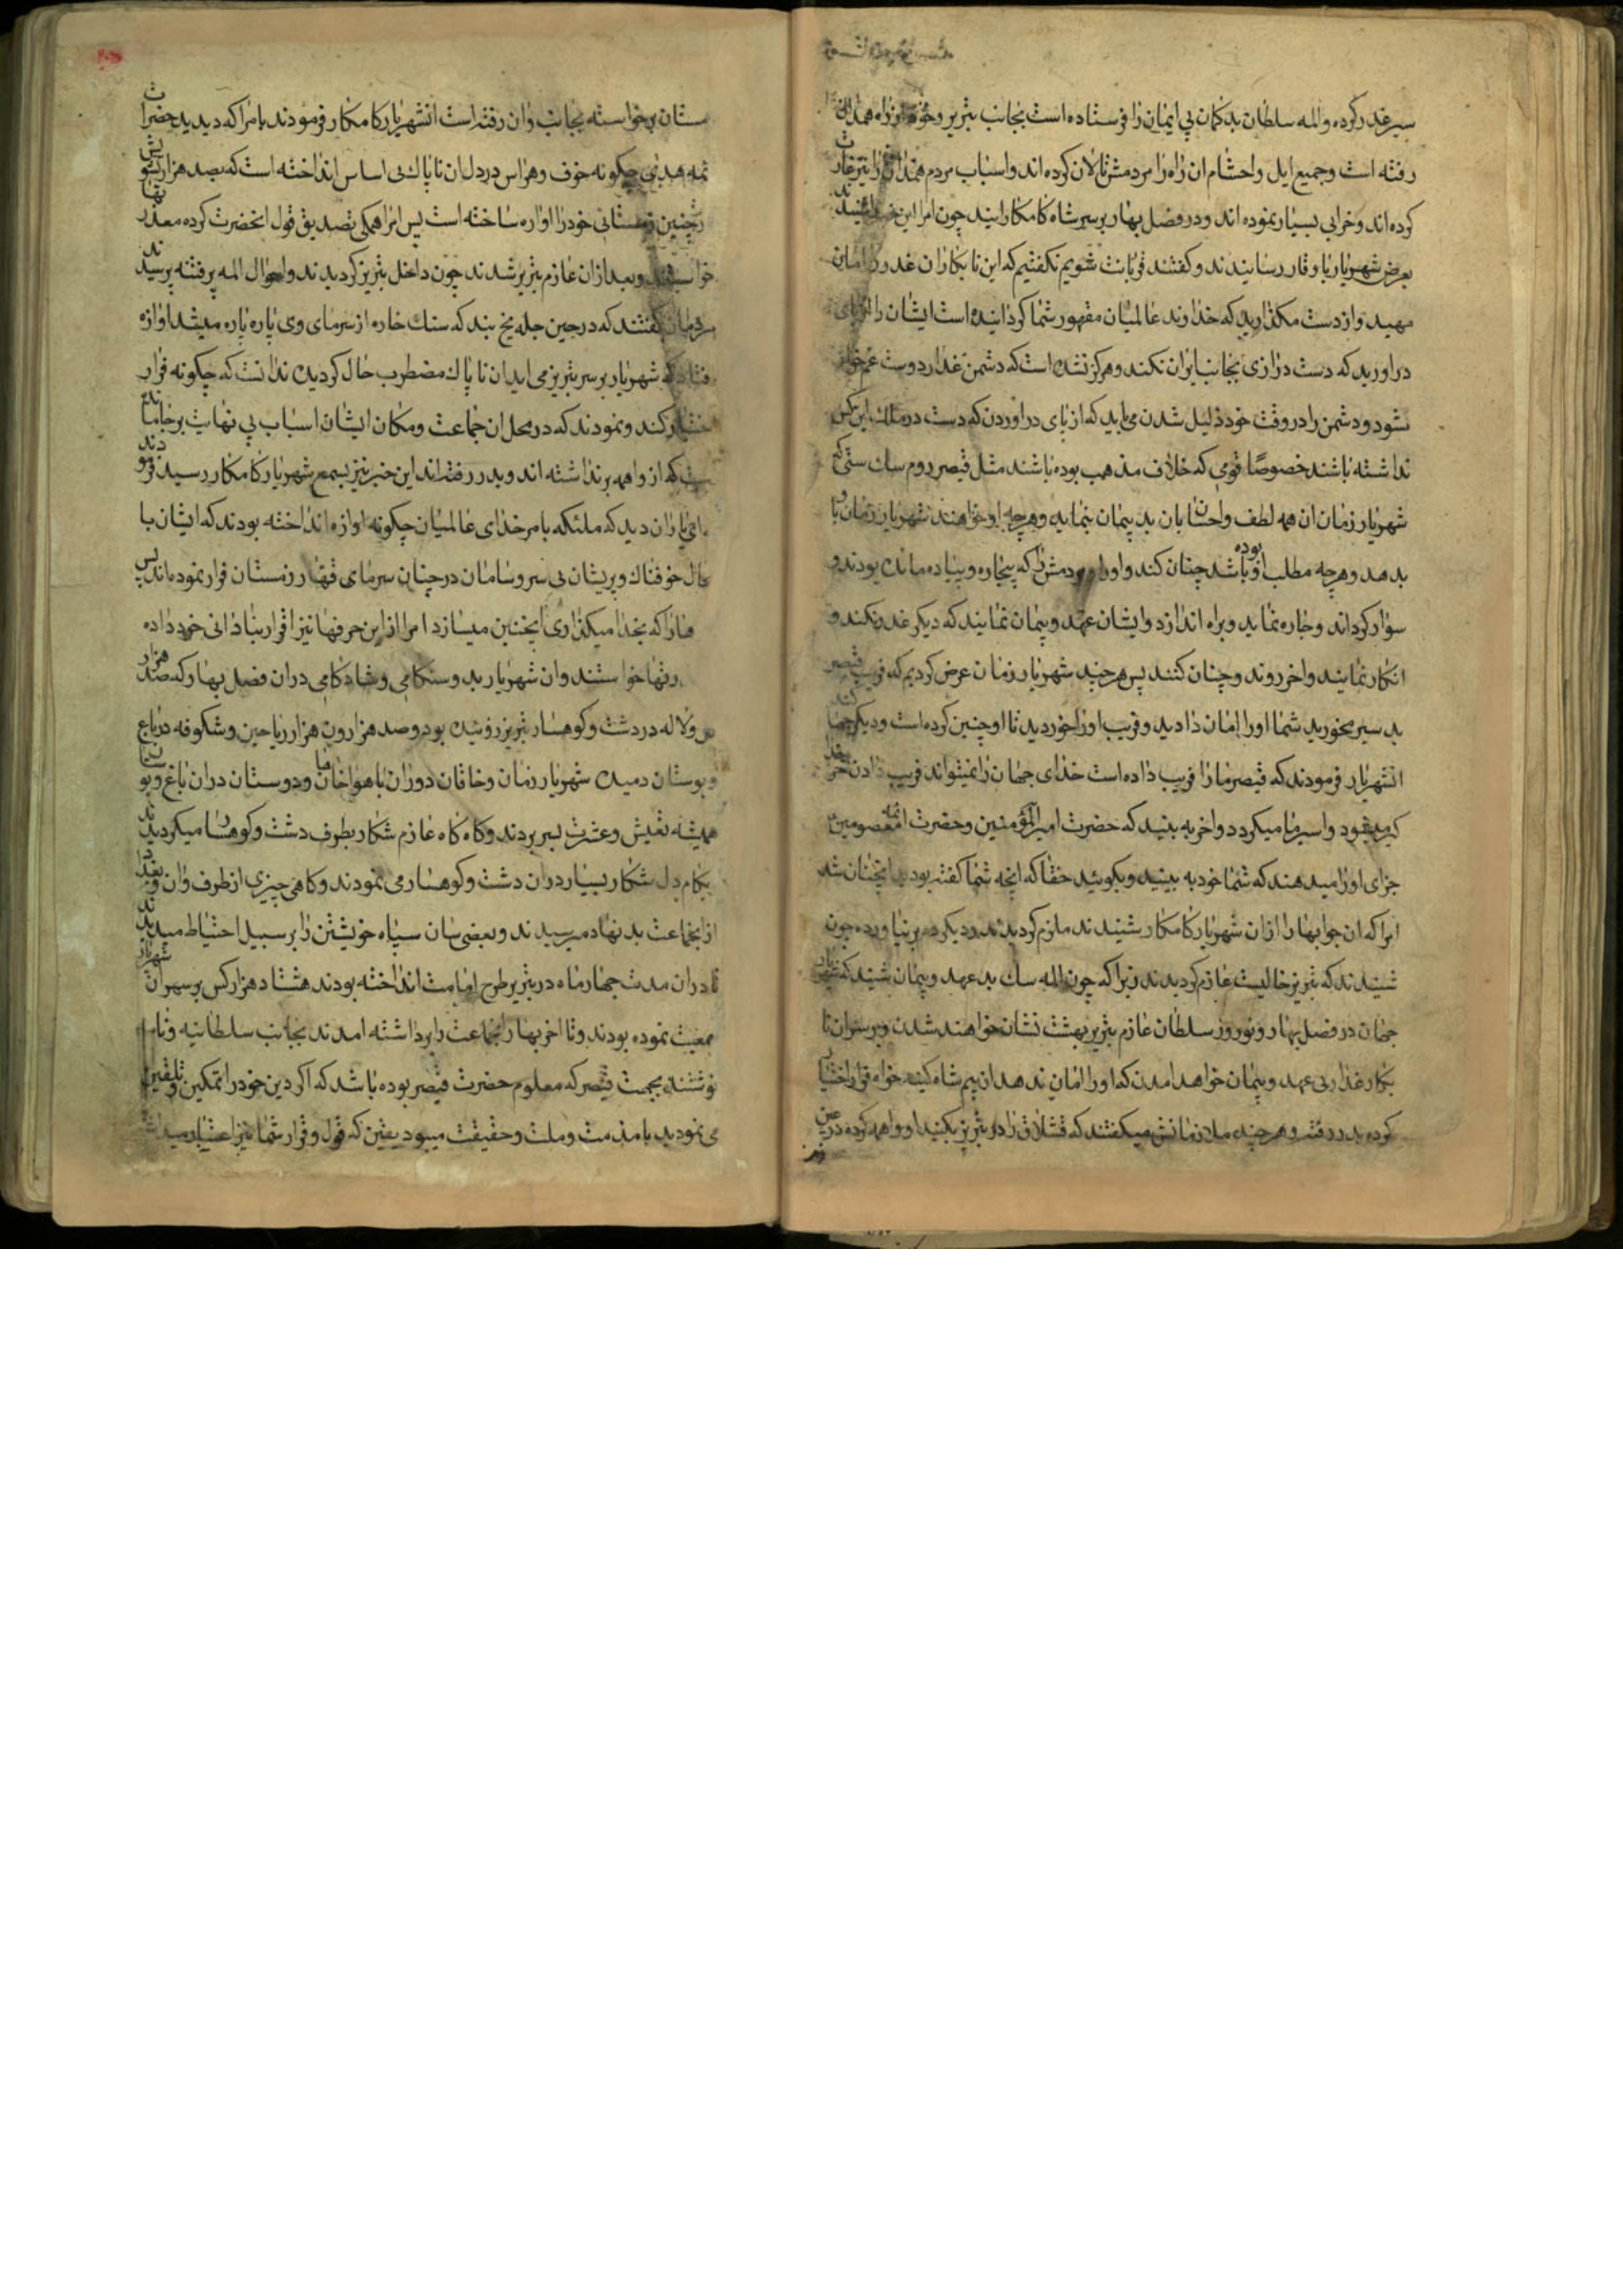 سیر غدر کرده و المه سلطان بد کمان بی ایمان را فرستاده است بجانب تبریز و خود از راه همدان
رفته است و جمیع ایل و احشام ان راه را مردمش تالان کرده اند و اسباب مردم همدان را نیز غارت
کرده اند و خرابی بسیار نموده اند و در فصل بهار بر سر شاه کامکار ایند چون امرا این خبر شنیدند
بعرض شهریار با وقار رسانیدند و کفتند قربانت شویم نکفتیم که این نابکاران غدر را امان
مهید و از دست مکذارید که خداوند عالمیان مقهور شما کردانیده است ایشان را از پای
در اورید که دست درازی بجانب ایران نکند و هرکز نشده است که دشمن غدار دوست غمخوار
شود و دشمن را در وقت خود ذلیل شدن می باید که از پای در اوردن که دست در ملک این کس
نداشته باشند خصوصا قومی که خلاف مذهب بوده باشند مثل قیصر روم سک سنی که
شهریار زمان ان همه لطف و احسان بان بد پیمان بنماید و هرچه او خواهند شهریار زمان با
بدهد و هرچه مطلب او بوده باشد چنان کند و او را و مردمش را که بیچاره و پیاده مانده بودند و
سوار کرداند و چاره نماید و براه اندازد و ایشان عهد و پیمان نمایند که دیکر غدر نکنند و
انکار نمایند و اخر روند و چنان کنند پس هرچند شهریار زمان عرض کردیم که فریب قیصر
بد سیر مخورید شما او را امان دادید و فریب او را خوردید تا او چنین کرده است و دیکر چها کند
انشهریار فرمودند که قیصر ما را فریب داده است خدای جهان را نمیتواند فریب دادن
کیر میشود و اسیر ما میکردد و اخر به بینید که حضرت امیرالمؤمنین و حضرت ائمه معصومین
جزای او را میدهند که شما خود به بینید و بکوئید حقا که انچه شما کفته بودید انچنان شد
امرا که ان جوابها را از ان شهریار کامکار شنیدند ملزم کردیدند و دیکر دم بر نیاورده چون
شنیدند که تبریز خالیست عازم کردیدند زیرا که چون المه سک بد عهد و پیمان شنید که شهریار
جهان در فصل بهار و نوروز سلطان عازم تبریز بهشت نشان خواهند شدن و بر سر ان نا
بکار غدار بی عهد و پیمان خواهد امدن که او را امان ندهد ان بیم شاه کینه خواه قرار اختیار
کرده بدر رفته و هرچند ملازمانش میکفتند که قشلاق را در تبریز بکنید او واهمه کرده در عین
زمستان برخواسته بجانب وان رفته است انشهریار کامکار فرمودند بامرا که دیدید حضرات
ائمه هدی چکونه خوف و هراس در دل ان ناپاک بی اساس انداخته است که بصد هزار تشویش
در چنین زمستانی خود را اواره ساخته است پس امرا همکی تصدیق قول انحضرت کرده معذرتها
خواستند و بعد از ان عازم تبریز شدند چون داخل تبریز کردیدند و احوال المه پر فتنه پرسیدند
مردمان کفتند که در حین چله یخ بند که سنک خاره از سرمای وی پاره پاره میشد اوازه
فتاد که شهریار بر سر تبریز می اید ان ناپاک مضطرب حال کردیده ندانست که چکونه قرار
اختیار کند و نمودند که در محل ان جماعت و مکان ایشان اسباب بی نهایت بر جا مانده
ست که از واهمه برنداشته اند و بدر رفته اند این خبر نیز بسمع شهریار کامکار رسید فرمودند
ای یاران دید که ملئکه بامر خدای عالمیان چکونه اوازه انداخته بودند که ایشان با
حال خوفناک و پریشان بی سر و سامان در چنان سرمای قهار زمستان قرار نموده اند پس
ما را که بخدا میکذاری اینچنین میسازد امرا از این حرفها نیز اقرار بنادانی خود داده
رتها خواستند و ان شهریار بدوستکامی و شادکامی در ان فصل بهار که صد هزار
و لاله در دشت و کوهسار تبریز روئیده بود و صد هزار ون هزار ریاحین و شکوفه در باغ
و بوستان دمیده شهریار زمان و خاقان دوران با هواخاهان و دوستان در ان باغ و بوستان
همیشه بعیش و عشرت بسر بردند و کاه کاه عازم شکار بطرف دشت و کوهسار میکردیدند
بکام دل شکار بسیار در ان دشت و کوهسار می نمودند و کاهی چیزی از طرف وان و بغداد
از انجماعت بد نهاد میرسیدند و بعضی سان سپاه خویشتن را بر سبیل احتیاط میدیدند
تا در ان مدت چهار ماه در تبریز طرح اقامت انداخته بودند هشتاد هزار کس بر سر ان شهریار
جمعیت نموده بودند و تا اخر بهار انجماعت را برداشته امدند بجانب سلطانیه و نامه
نوشتند بجهت قیصر که معلوم حضرت قیصر بوده باشد که اکر دین خود را تمکین و تلقین
می نمودید با مذهب و ملت و حقیقت میبود یقین که قول و قرار شما نیز اعتبار میداشت